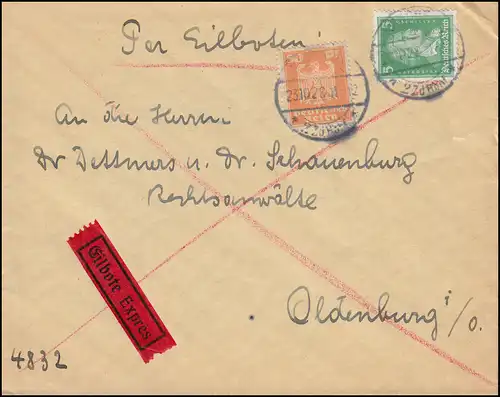 Per Eilboten!
50 Pf
Deutsches Reich
5
Deutsches Reich
5
23.10.28.
An die Herren
Dr Dettmers u. Dr. Schauenburg
Rechtsanwälte
Eilbote Expres
Oldenburg i/o.
4832